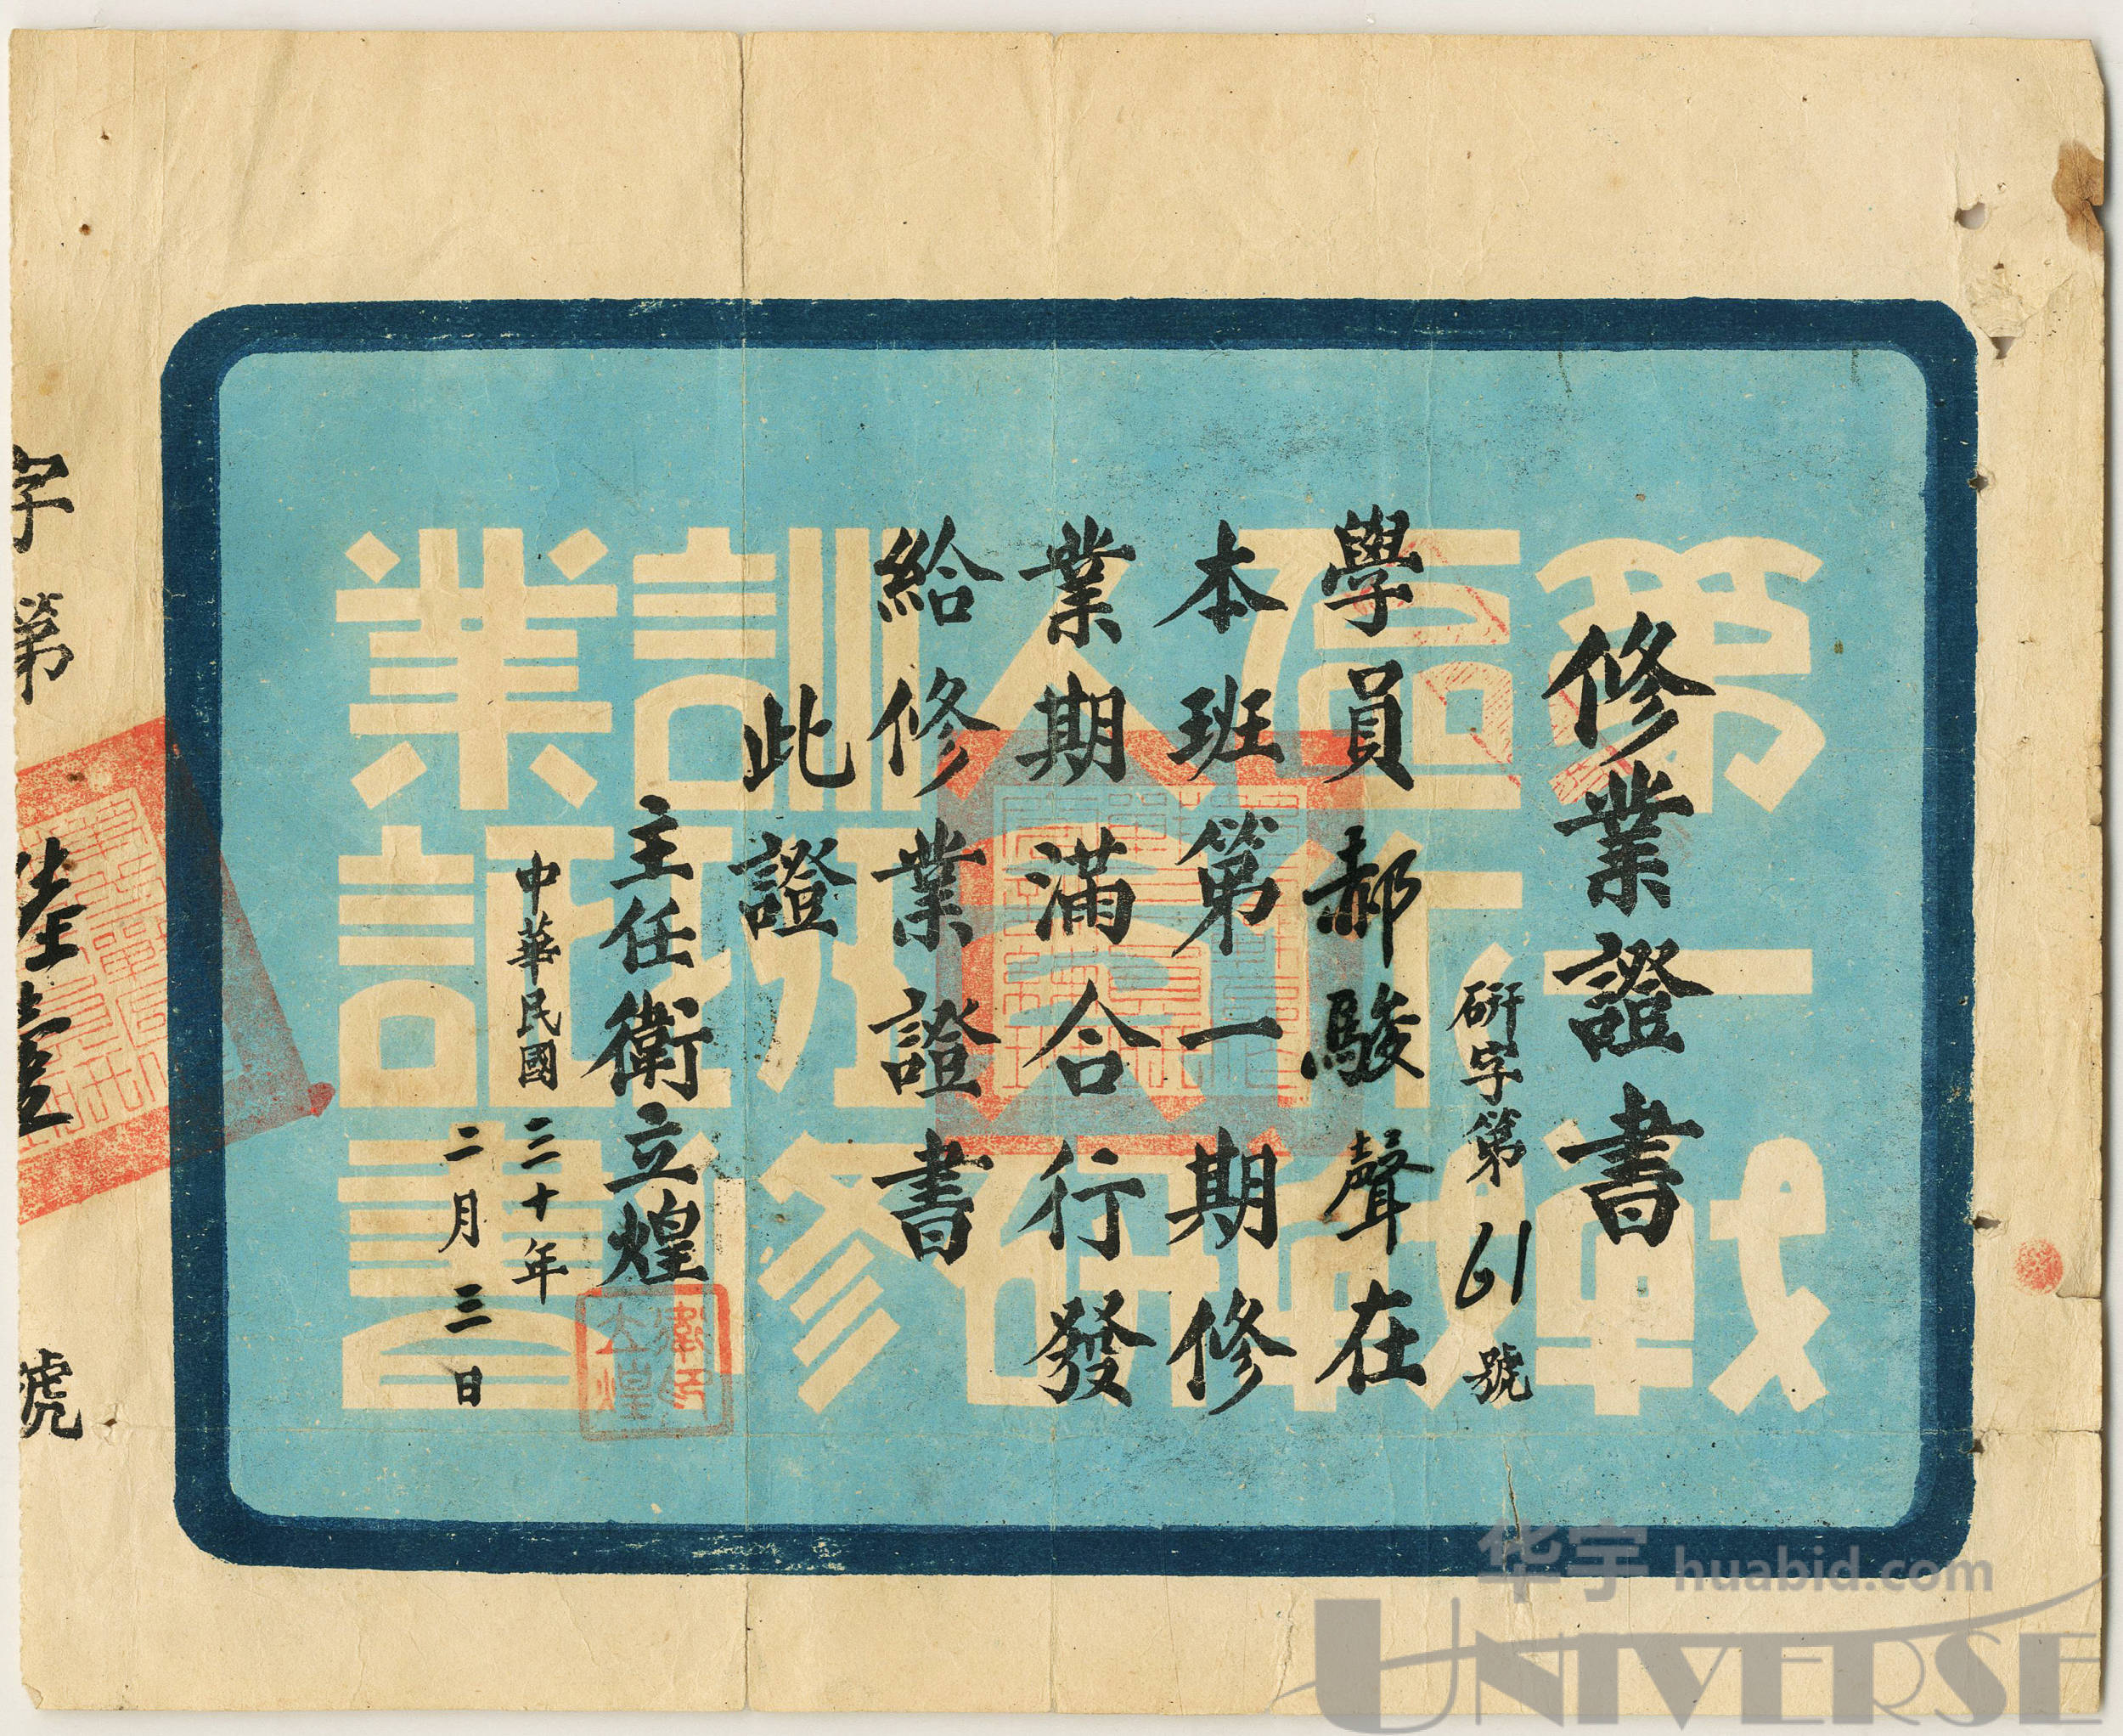 修業證書
研字第61號
學員郝駿聲在
本班第一期修
業期滿合行發
給修業證書
此證
主任衛立煌
中華民國三十年
二月三日
字第陸壹號
第一戰
區行政
人員研
訓班修
業証書
华宇 huabid.com
UNIVERSE